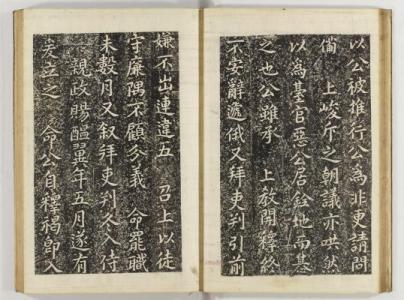 以公被推行公為非更請問
備 上峻斥之朝議亦哄然
以為臺官惡公居銓地而基
之也公雖承 上教開釋終
不安辭遞俄又拜吏判引前
嫌不出連違五 召上以徒
守廉隅不顧分義 命罷職
未數月又叙拜吏判冬入侍
親政賜醞翌年五月遂有
爰立之 命公自釋褐即入